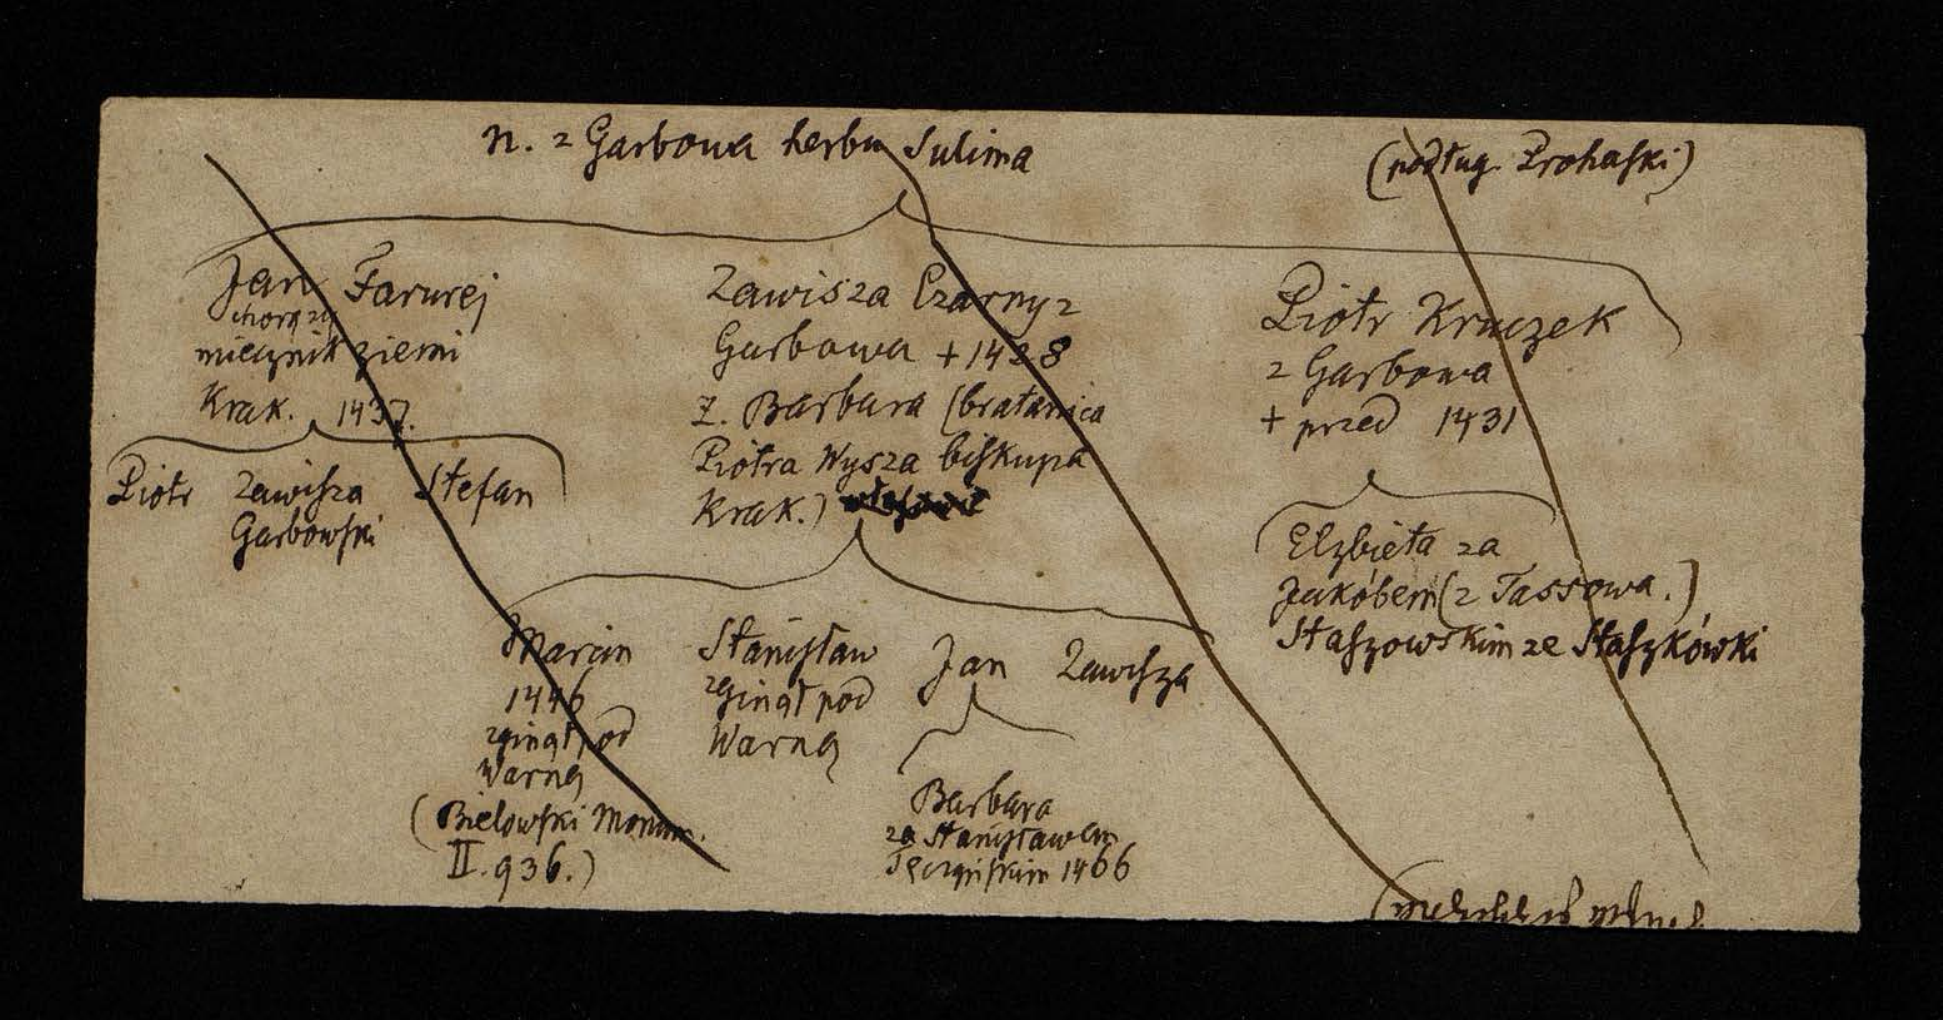 n. z Garbowa herbu Sulima
(podług. Prohaski)
Jan Farurej
chorąży
miecznik ziemi
Krak. 1437.
Piotr Zawisza Stefan
Garbowski
Zawisza Czarny z
Garbowa + 1428
Ż. Barbara (bratanica
Piotra Wysza biskupa
Krak.)
Marcin
1446
zginął pod
Warną
(Bielowski Monum.
II. 936.)
Stanisław
zginął pod
Warną
Jan Zawisza
Barbara
za Stanisławem
Tęczyńskim 1466
Piotr Kruczek
z Garbowa
+ przed 1431
Elzbieta za
Jakóbem (z Tassowa.)
Staszowskim ze Staszkówki